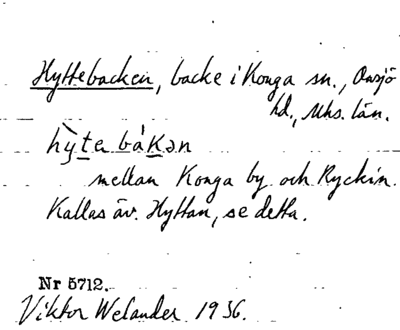 Hyttebacken, backe i Konga sn., Onsjö
hd., Mhs. län.
hỳte båkən
mellan Konga by och Ryckin.
Kallas äv. Hyttan, se detta.
Nr 5712.
Viktor Welander 1936.